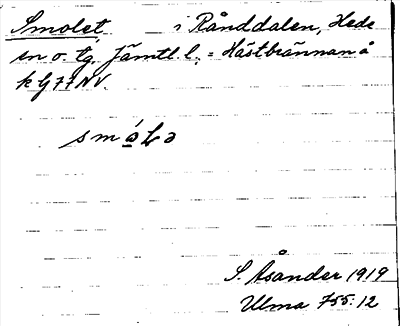 Smolet i Rånddalen, Hede
sn o. tg. Jämtl. l. = Hästbrännan å
k G 77 NV.
smóLə
S. Åsander 1919
Ulma 755:12